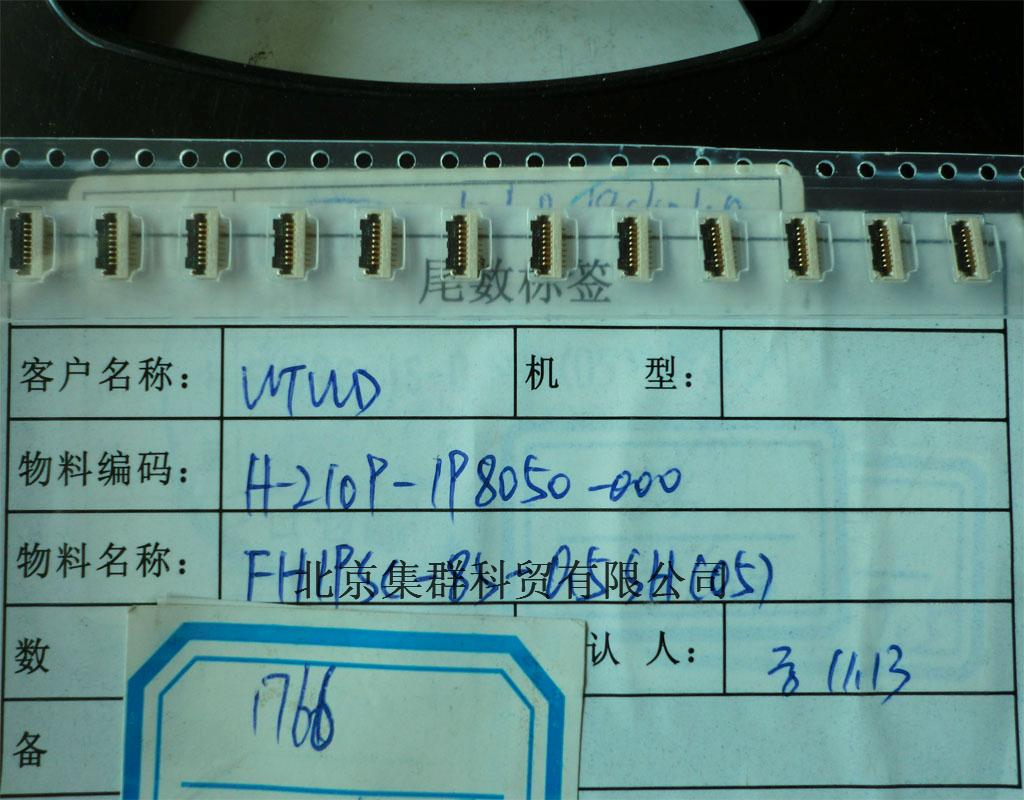 尾数标签
客户名称： UTUD 机 型：
物料编码： H-210P-1P8050-000
物料名称：
北京集群科贸有限公司
数 认 人： 11.13
1766
备